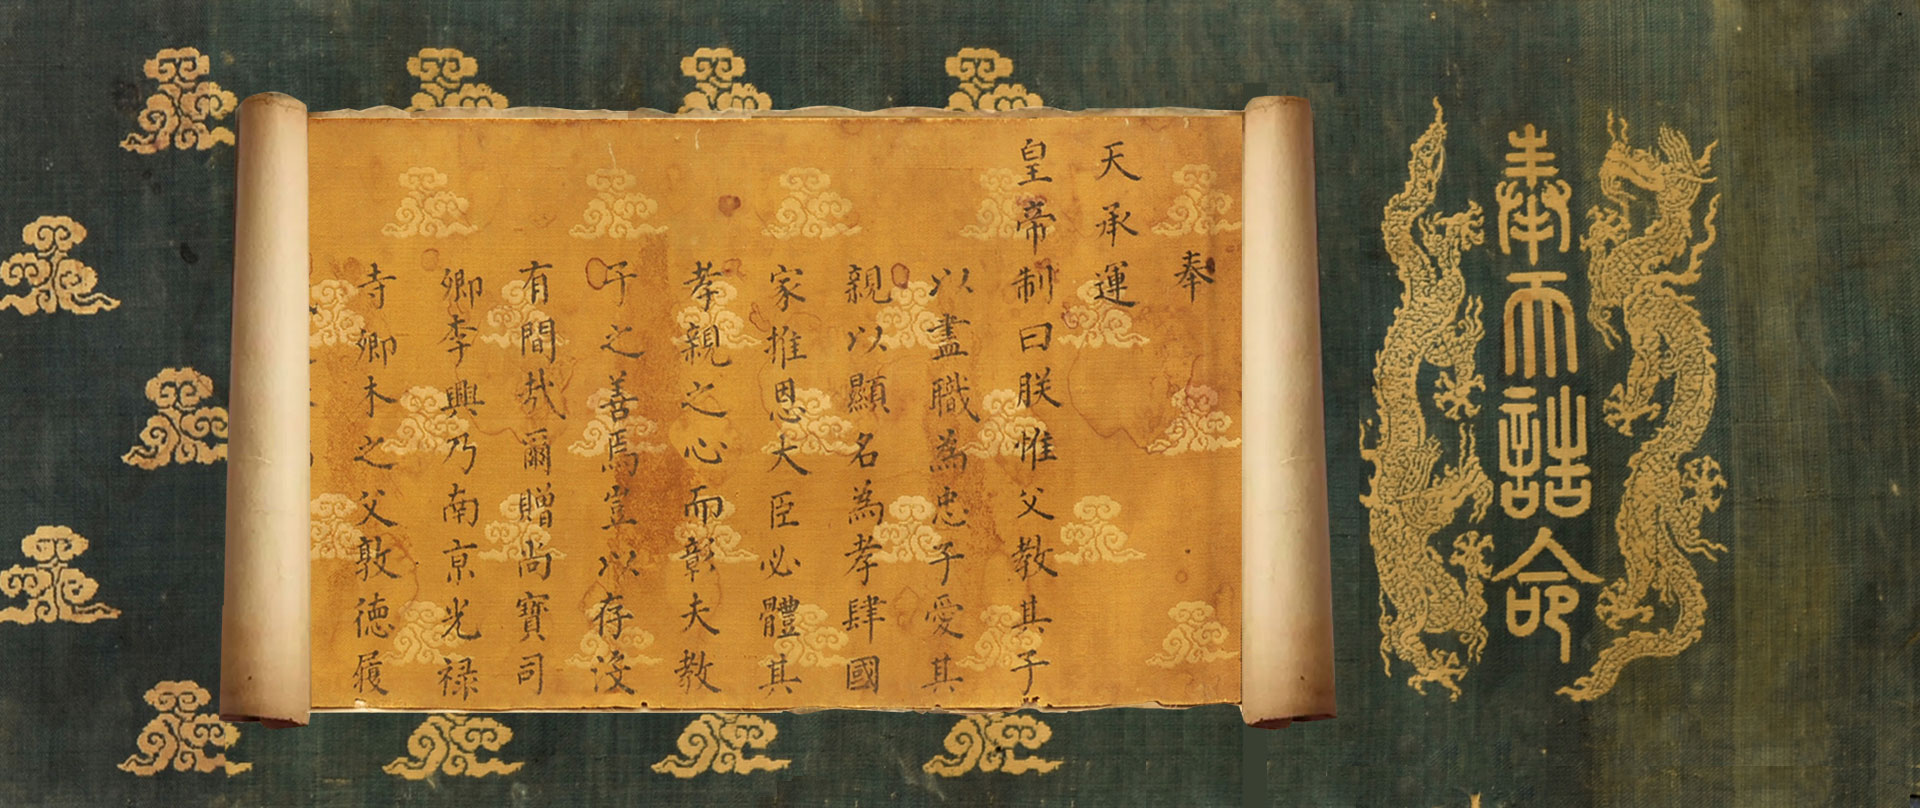 奉天誥命
奉
天承運
皇帝制曰朕惟父教其子
以盡職為忠子愛其
親以顯名為孝肆國
家推恩大臣必體其
孝親之心而彰夫教
子之善焉豈以存沒
有間哉爾贈尚寶司
卿李興乃南京光祿
寺卿之父敦德履